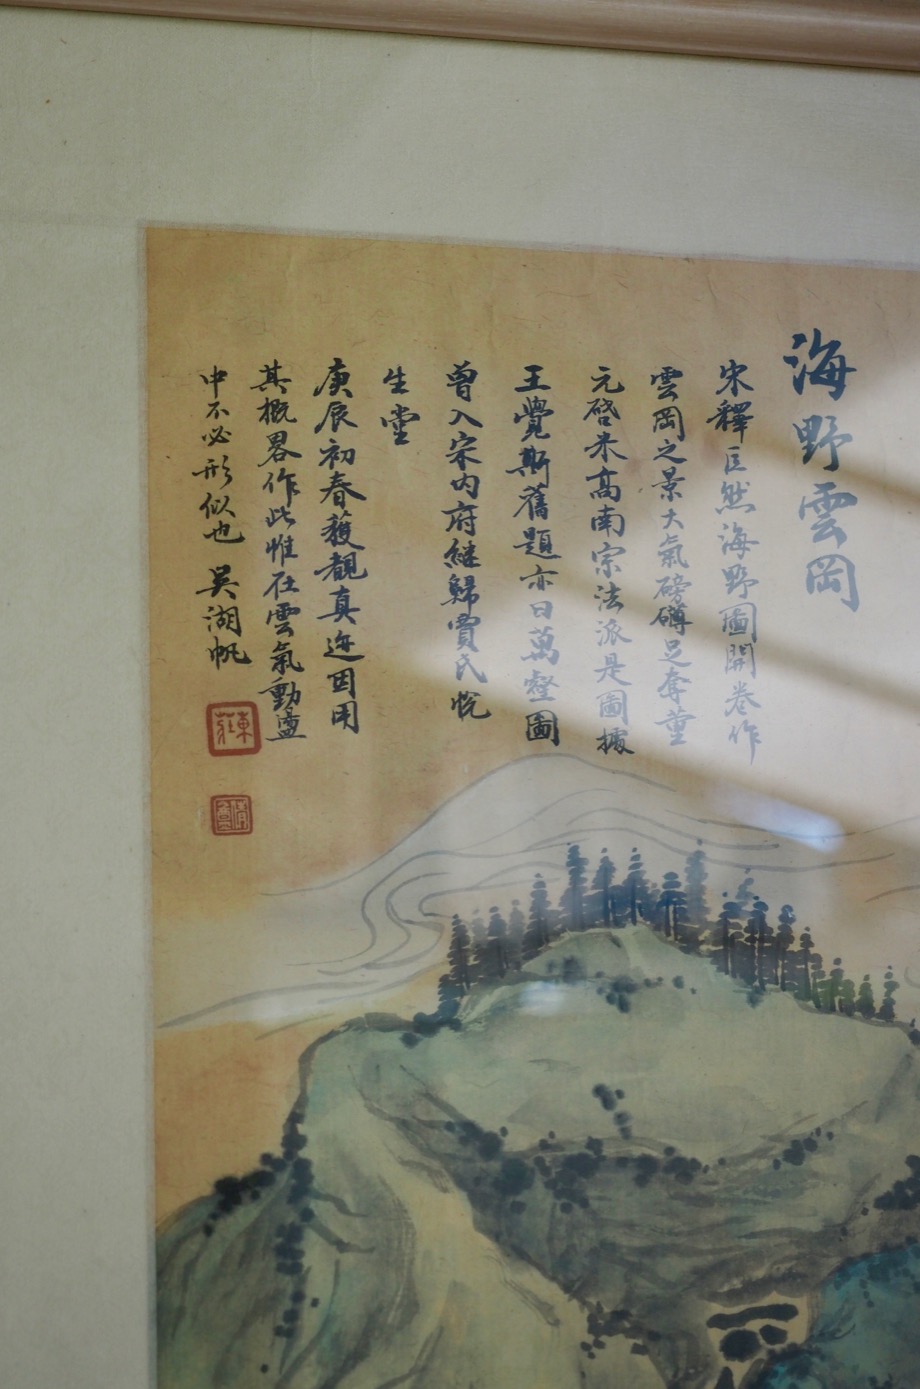 海野雲岡
宋釋巨然海野圖開卷作
雲岡之景大氣磅礴足奪董
元啓米高南宗法派是圖據
王覺斯舊題亦曰萬壑圖
曾入宋内府継歸賈氏悦
生堂
庚辰初春獲觀真迹因用
其概畧作此惟在雲氣動盪
中不必形似也 吳湖帆